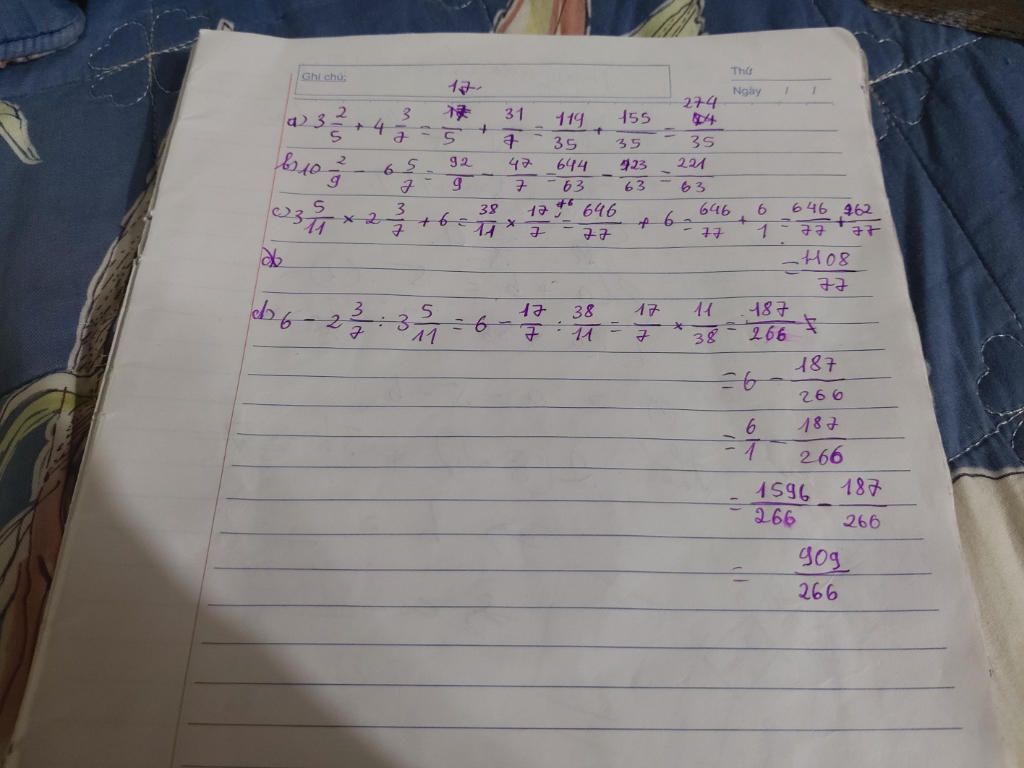 Ghi chú:
Thứ
Ngày / /
a) 3 2/5 + 4 3/7 = 17/5 + 31/7 = 119/35 + 155/35 = 274/35
b) 10 2/9 - 6 5/7 = 92/9 - 47/7 = 644/63 - 423/63 = 221/63
c) 3 5/11 × 2 3/7 + 6 = 38/11 × 17/7 + 6 = 646/77 + 6 = 646/77 + 6/1 = 646/77 + 462/77
= 1108/77
d) 6 - 2 3/7 : 3 5/11 = 6 - 17/7 : 38/11 = 17/7 × 11/38 = 187/266
= 6 - 187/266
= 6/1 - 187/266
= 1596/266 - 187/266
= 909/266